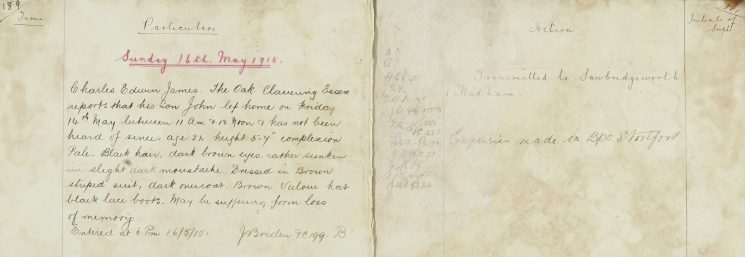 189
Time
Particulars
Sunday 16th. May 1915.
Charles Edwin James. The Oak. Clavering Essex
reports that his son John left home on Friday
14th May between 11 Am & 12 Noon & has not been
heard of since. age 21. height 5-4" complexion
Pale. Black hair, dark brown eyes, rather sunken
in, slight dark moustache. Dressed in Brown
striped suit, dark overcoat. Brown Valour hat
black lace boots. May be suffering from loss
of memory.
Entered at 6 Pm 16/5/15. J Briden PC 199 B
Action
Initials of
Supt
Transmitted to Sawbridgeworth
Hadham.
Enquiries made in BPS Stortford